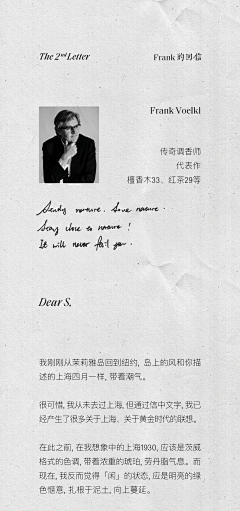 The 2nd Letter
Frank 的回信
Frank Voelkl
传奇调香师
代表作
檀香木33、红茶29等
Study nature. Love nature.
Stay close to nature!
It will never fail you.
Dear S,
我刚刚从茉莉雅岛回到纽约, 岛上的风和你描
述的上海四月一样, 带着潮气。
很可惜, 我从未去过上海, 但通过信中文字, 我已
经产生了很多关于上海、关于黄金时代的联想。
在此之前, 在我想象中的上海1930, 应该是茨威
格式的色调, 带着浓重的琥珀, 劳丹脂气息。而
现在, 我反而觉得「闲」的状态, 应是明亮的绿
色惬意, 扎根于泥土, 向上蔓延。